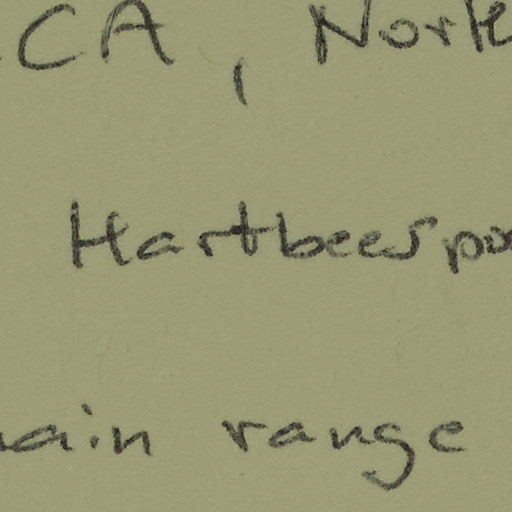 CA, North
Hartbeespo
ain range